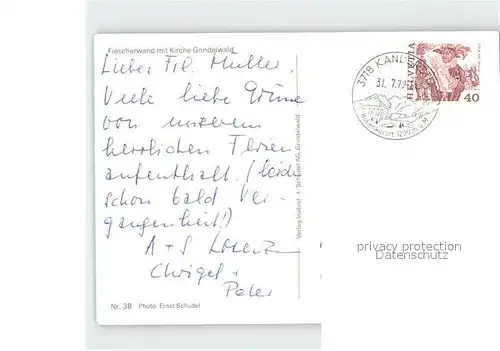 Fiescherwand mit Kirche Grindelwald
Liebe Frl. Muller,
Viele liebe Grüsse
von unserem
herrlichen Ferien
aufenthalt. (leider
schon bald Ver-
gangenheit!)
A + S Lorenz
Chrigel +
Peter
Nr. 38 Photo: Ernst Schudel
Verlag Inabnit + Schudel AG, Grindelwald
3718 KANDERSTEG
31. 7.79
1200 m ü. M.
HELVETIA
40
privacy protection
Datenschutz